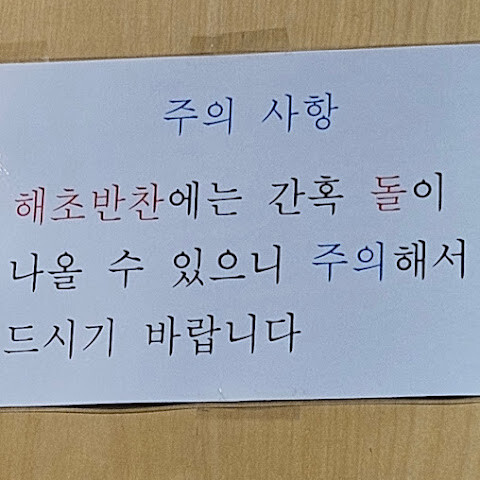 주의 사항
해초반찬에는 간혹 돌이
나올 수 있으니 주의해서
드시기 바랍니다